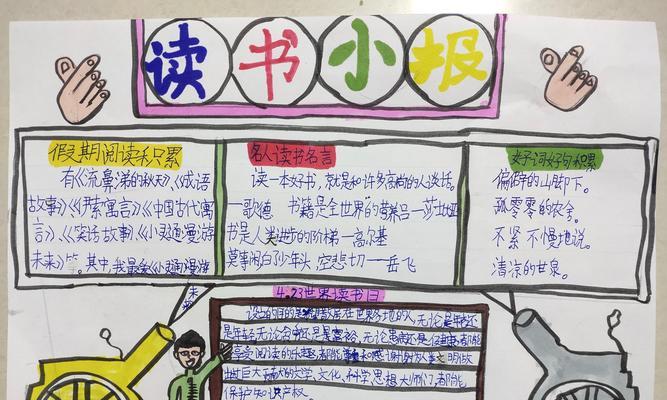 读书小报
假期阅读积累
有《流鼻涕的秋天》、《成语
故事》、《伊索寓言》、《中国古代寓
言》、《笑话故事》、《小灵通漫游
未来》等。其中,我最爱《小灵通漫游
未
名人读书名言
读一本好书,就是和许多高尚的人谈话。
—歌德 书籍是全世界的营养品—莎士比亚
书是人类进步的阶梯—高尔基
莫等闲白了少年头 空悲切——岳飞
好词好句积累
偏僻的山脚下。
孤零零的农舍。
不紧不慢地说。
清凉的甘泉。
4.23世界读书日
设立的目的是 散居在世界各地的人,无论是年老还
是年轻,无论 还是富裕,无论患病还是健康,都能
享受阅读的乐趣,都能 和感谢 为人类文明做
出过巨大 的文学、文化、科学、思想大师们,都能
保护知识产权。